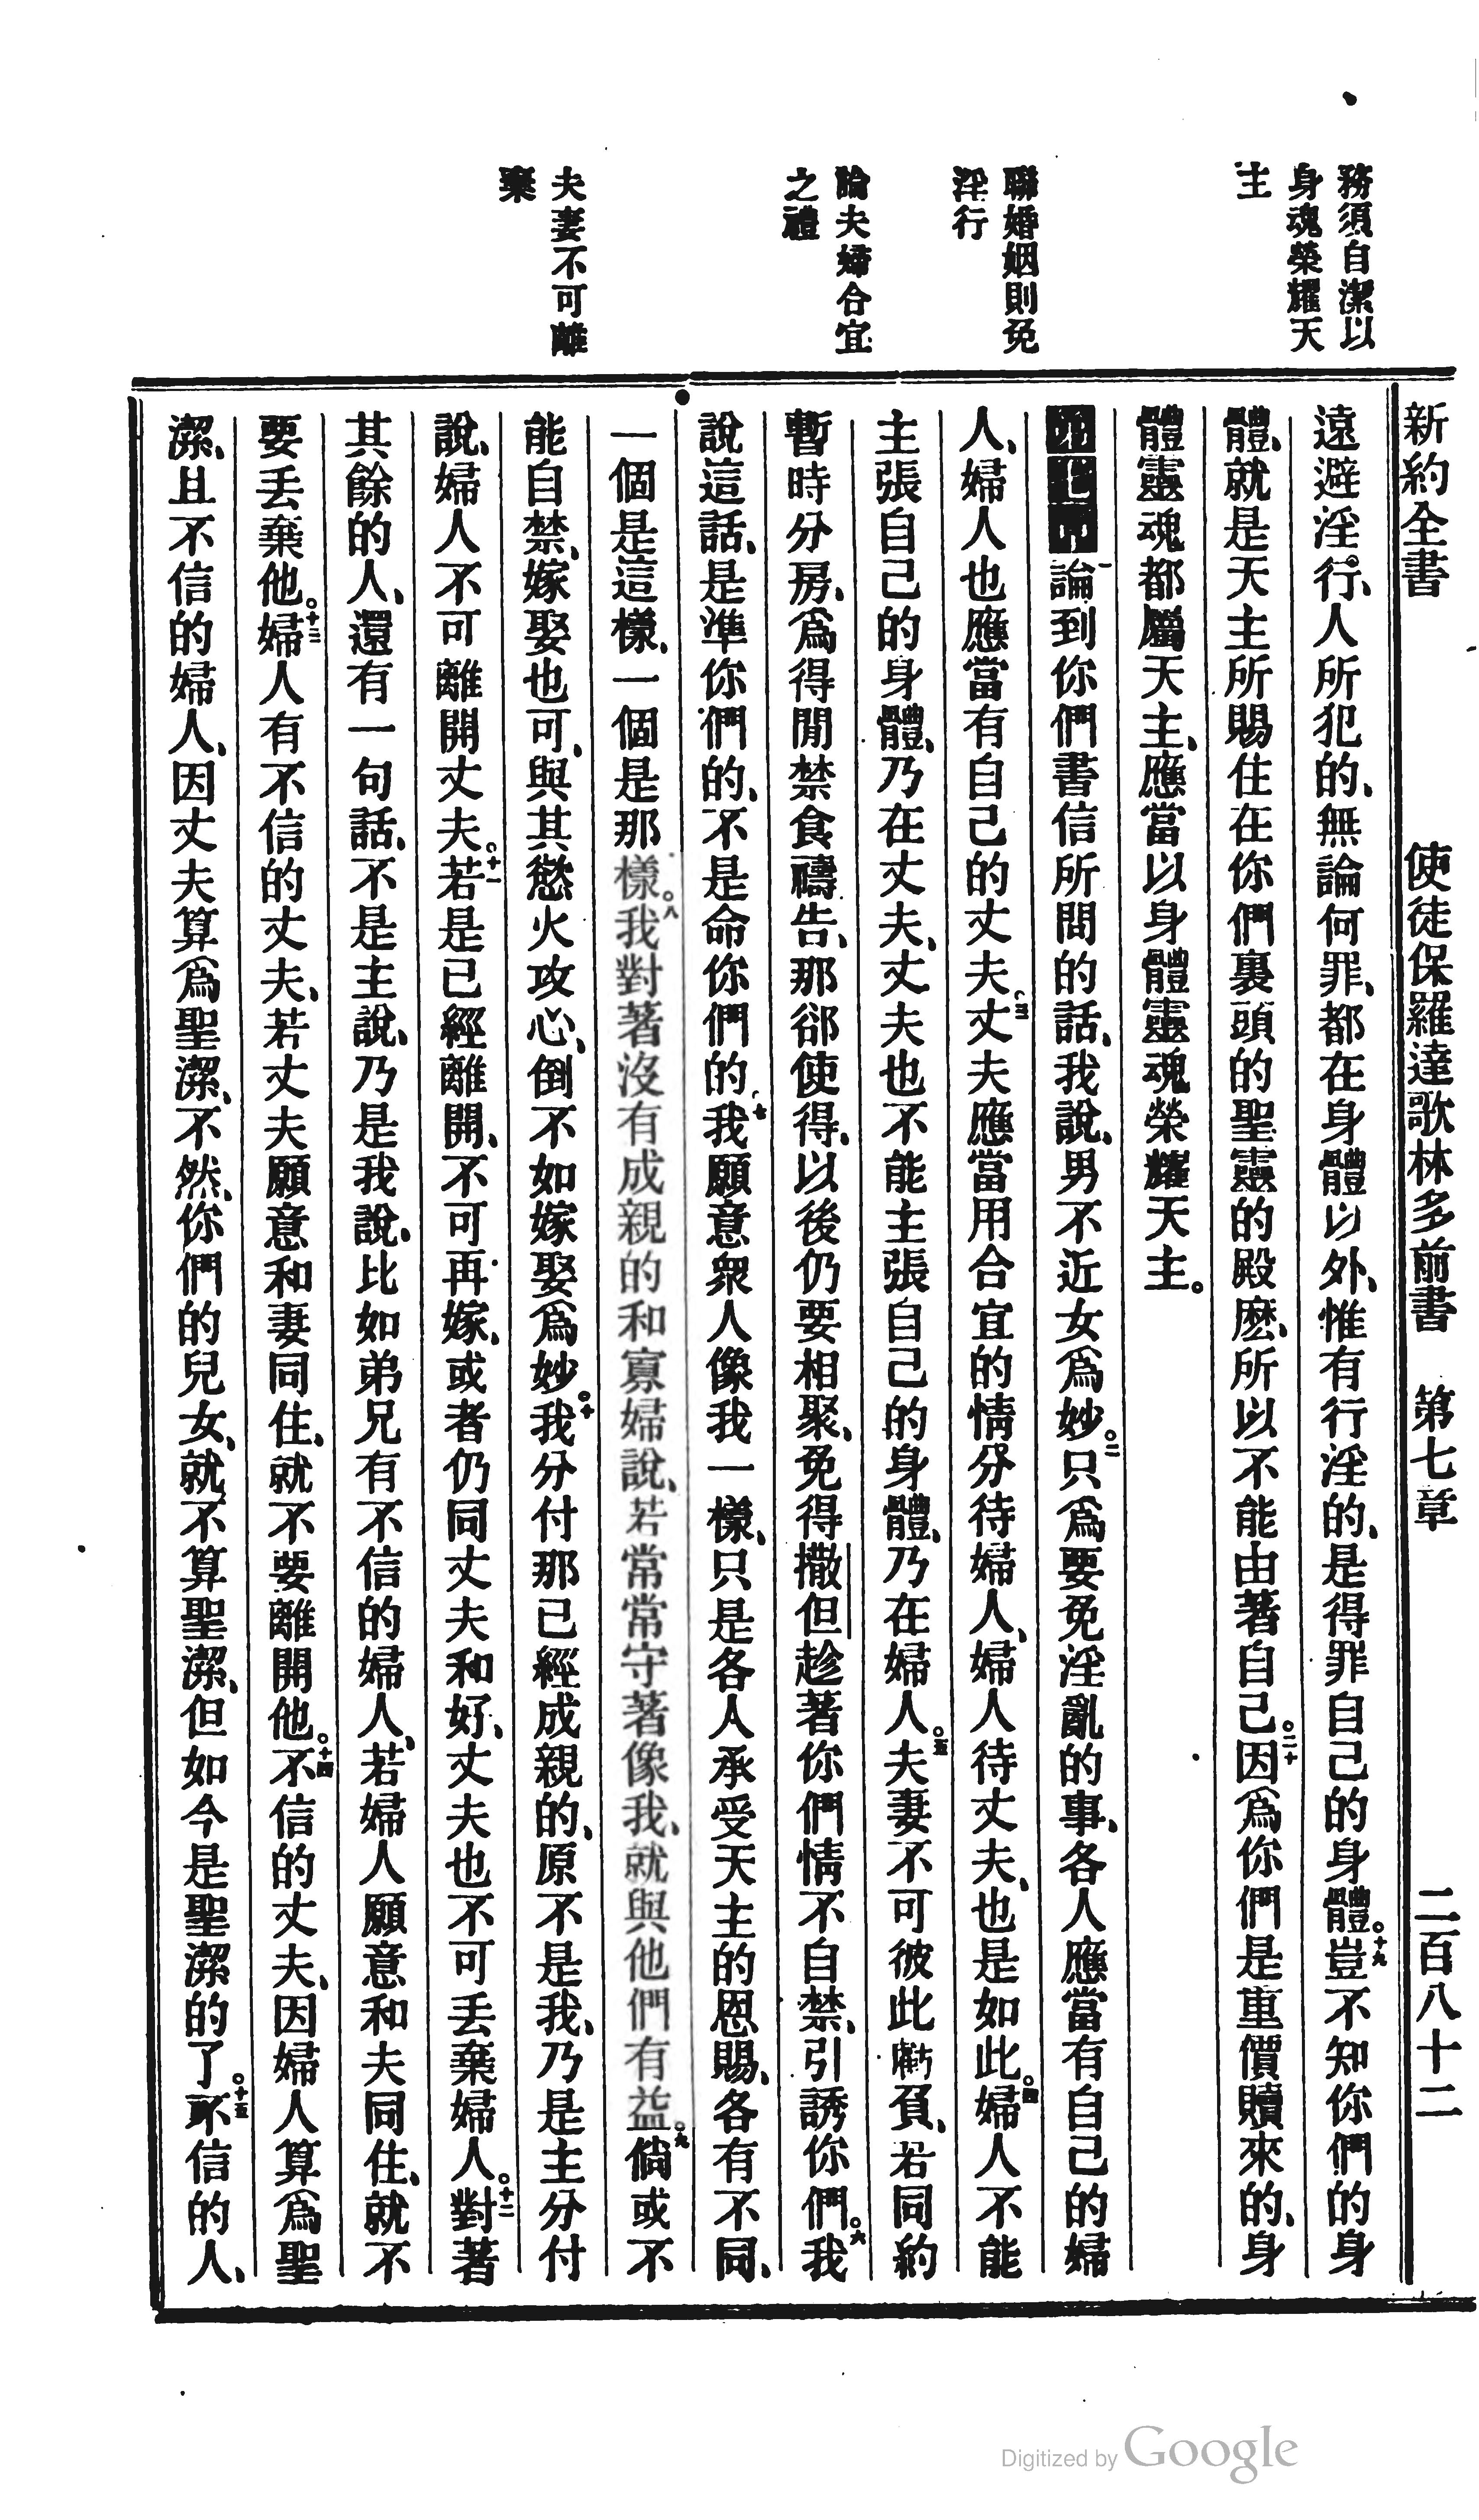 新約全書 使徒保羅達歌林多前書 第七章 二百八十二
務須自潔以
身魂榮耀天
主
聯婚姻則免
淫行
論夫婦合宜
之禮
夫妻不可離
棄
遠避淫行、人所犯的、無論何罪、都在身體以外、惟有行淫的、是得罪自己的身體。十九豈不知你們的身
體、就是天主所賜住在你們裏頭的聖靈的殿麽、所以不能由著自己。二十因爲你們是重價贖來的、身
體靈魂都屬天主、應當以身體靈魂榮耀天主。
一論到你們書信所問的話、我說、男不近女爲妙。二只爲要免淫亂的事、各人應當有自己的婦
人、婦人也應當有自己的丈夫。三丈夫應當用合宜的情分待婦人、婦人待丈夫、也是如此。四婦人不能
主張自己的身體、乃在丈夫、丈夫也不能主張自己的身體、乃在婦人。五夫妻不可彼此虧負、若同約
暫時分房、爲得閒禁食禱告、那卻使得、以後仍要相聚、免得撒但趁著你們情不自禁、引誘你們。六我
說這話、是準你們的、不是命你們的。七我願意衆人像我一樣、只是各人承受天主的恩賜、各有不同、
一個是這樣、一個是那樣。八我對著沒有成親的和寡婦說、若常常守著像我、就與他們有益。九倘或不
能自禁、嫁娶也可、與其慾火攻心、倒不如嫁娶爲妙。十我分付那已經成親的、原不是我、乃是主分付
說、婦人不可離開丈夫。十一若是已經離開、不可再嫁、或者仍同丈夫和好、丈夫也不可丢棄婦人。十二對著
其餘的人、還有一句話、不是主說、乃是我說、比如弟兄有不信的婦人、若婦人願意和夫同住、就不
要丢棄他。十三婦人有不信的丈夫、若丈夫願意和妻同住、就不要離開他。十四不信的丈夫、因婦人算爲聖
潔、且不信的婦人、因丈夫算爲聖潔、不然、你們的兒女、就不算聖潔、但如今是聖潔的了。十五不信的人、
Digitized by Google